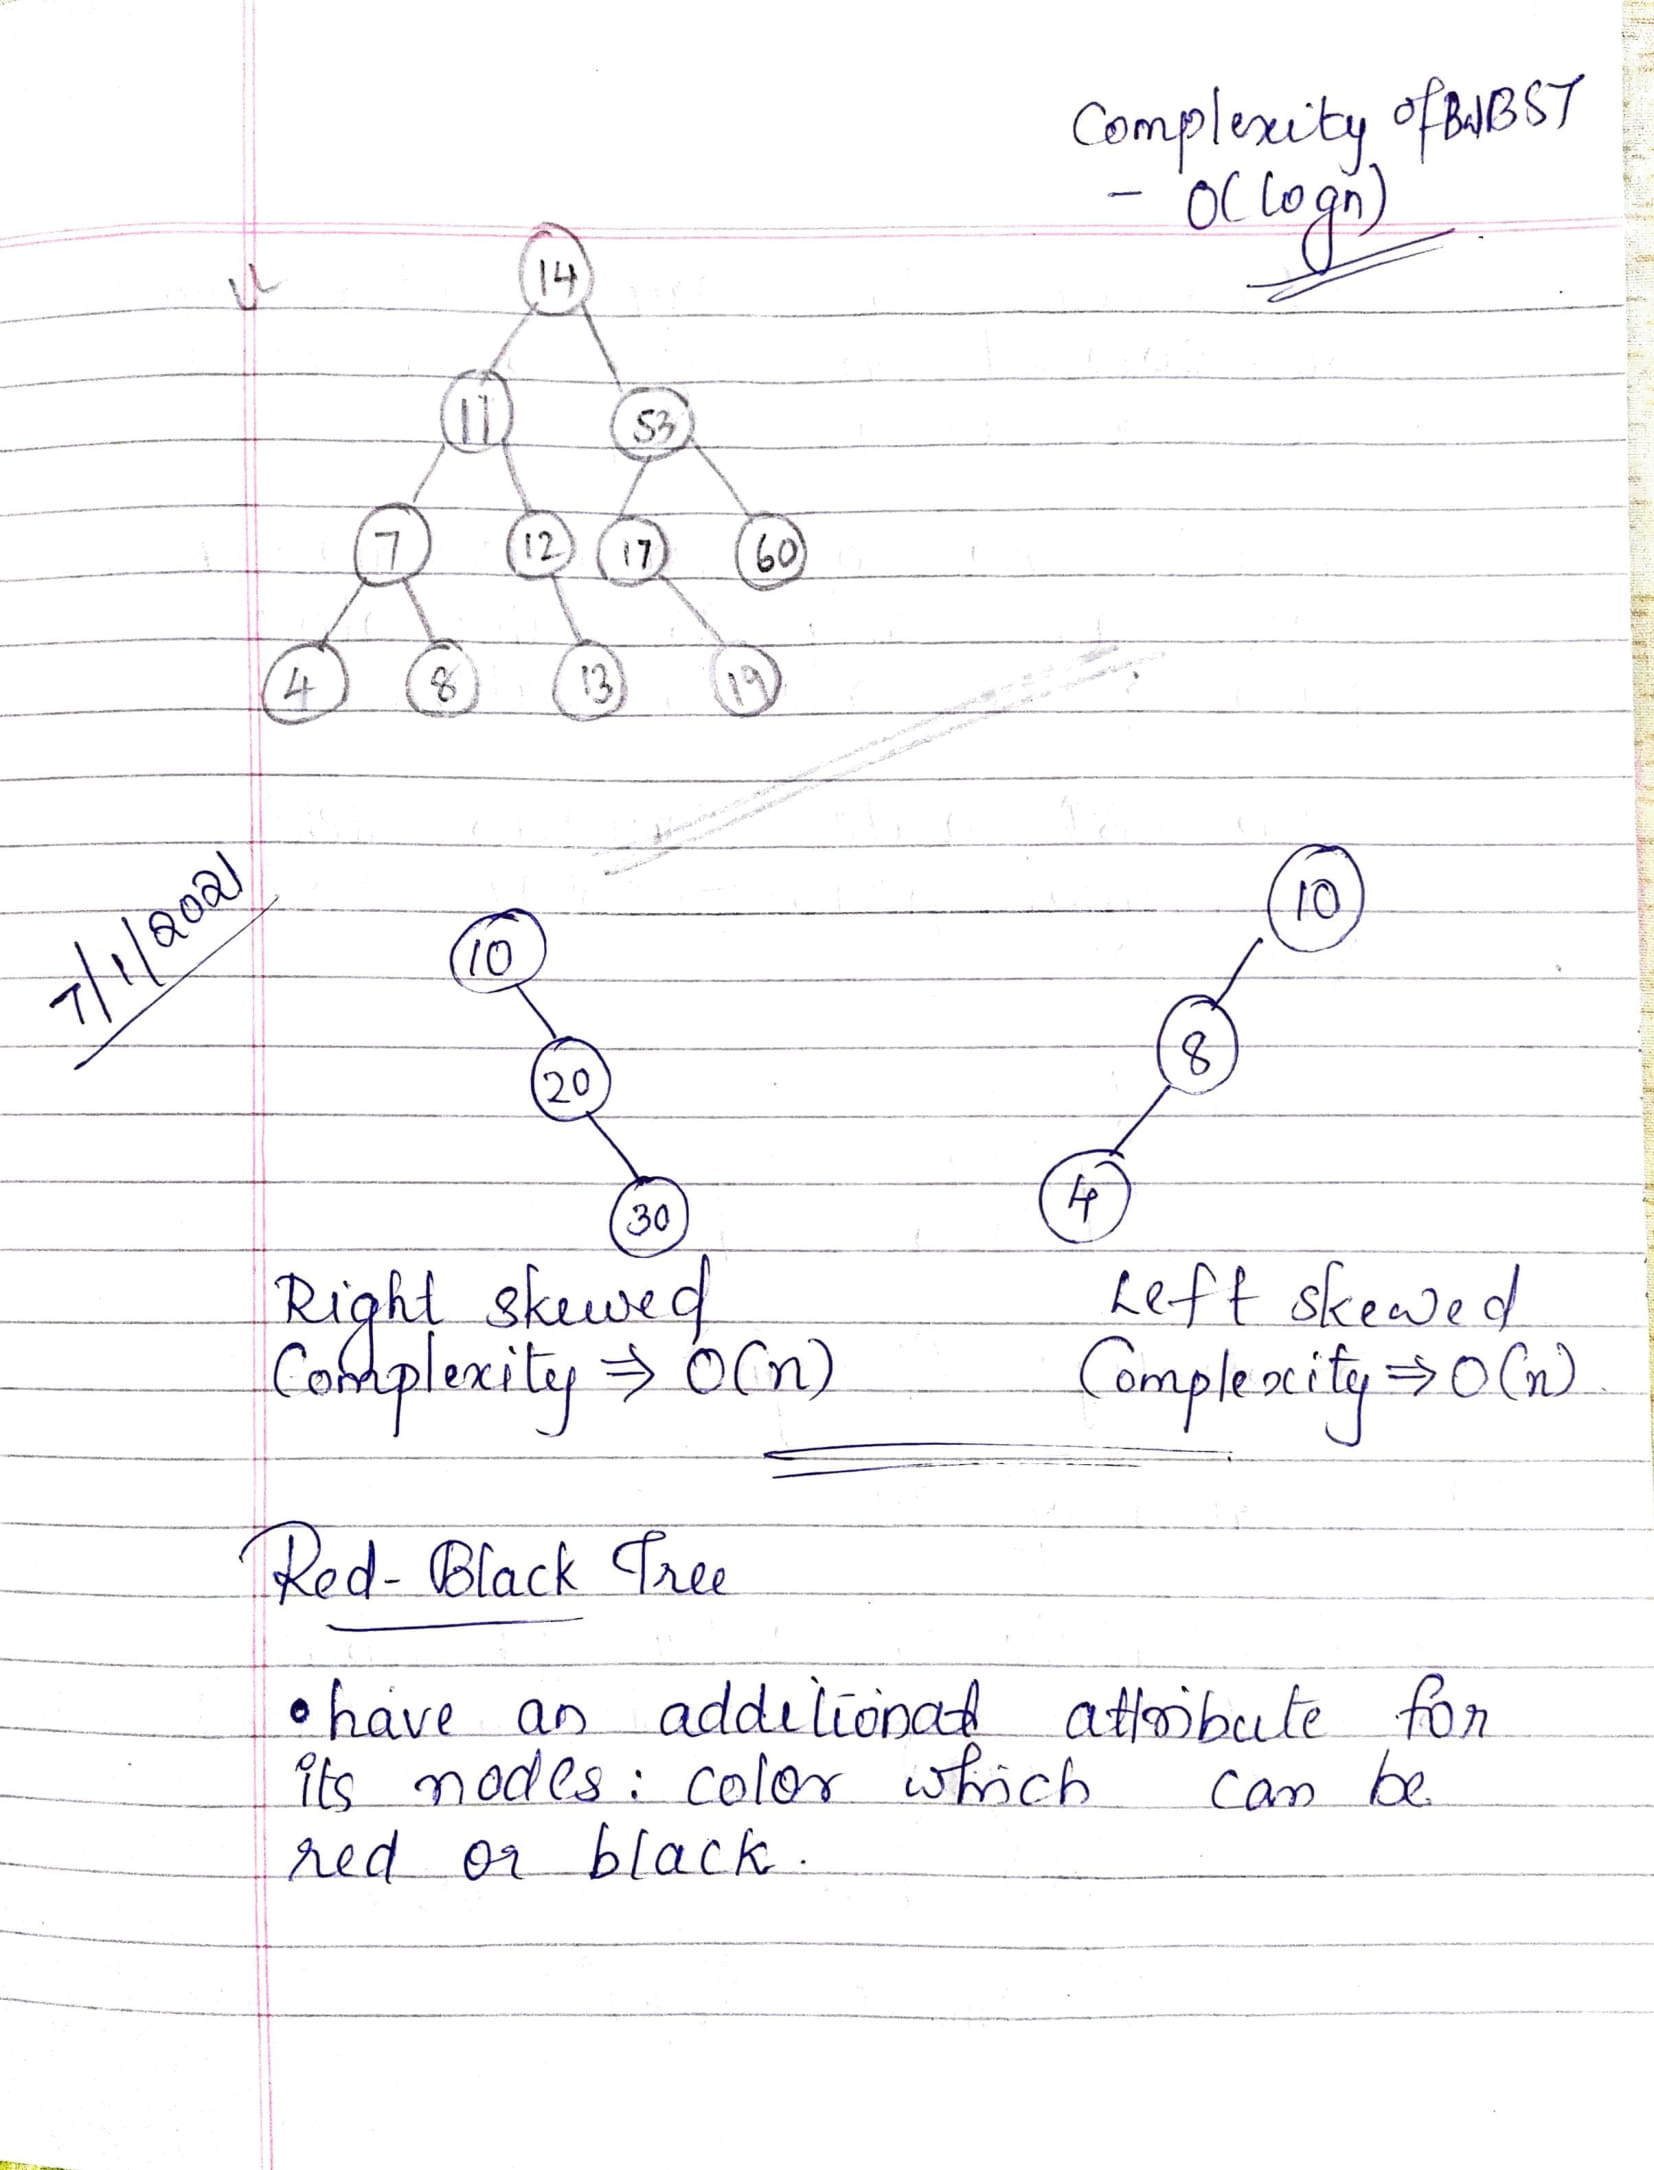 Complexity of
- O(logn)
14
11 53
7 12 17 60
4 8 13 19
7/1/2021
10
10
8
20
4
30
Right skewed
Left skewed
Complexity ⇒ O(n)
Complexity ⇒ O(n)
Red-Black Tree
• have an additional attribute for
its nodes: color which can be
red or black.